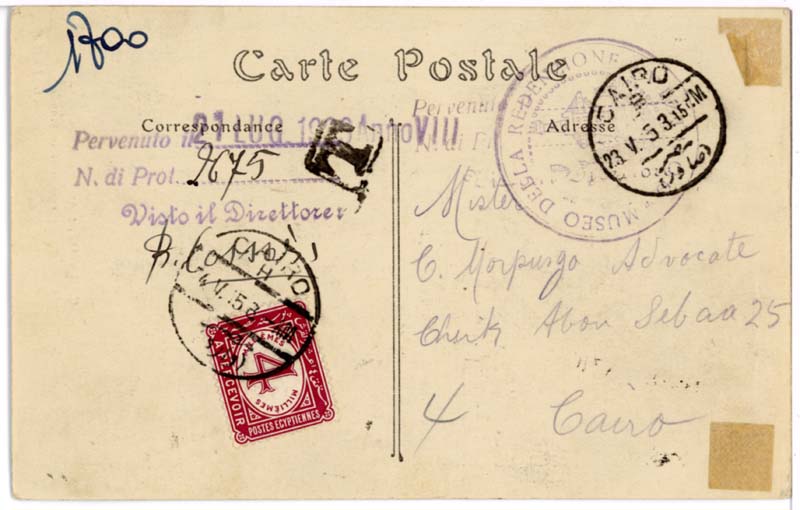 1700
Carte Postale
Correspondance
Adresse
T
Pervenuto il 21 LUG. Anno VIII
N. di Prot. 2675
Visto il Direttore
MUSEO DELLA REDENZIONE
Pervenuto
N. di P
CAIRO
23.V. 5 3.15 PM
القاهرة
CAIRO
Mister
C. Morpurgo Advocate
Cheik Abou Sebaa 25
4 Cairo
MILLIEMES
4
MILLIEMES
A PERCEVOIR
POSTES EGYPTIENNES